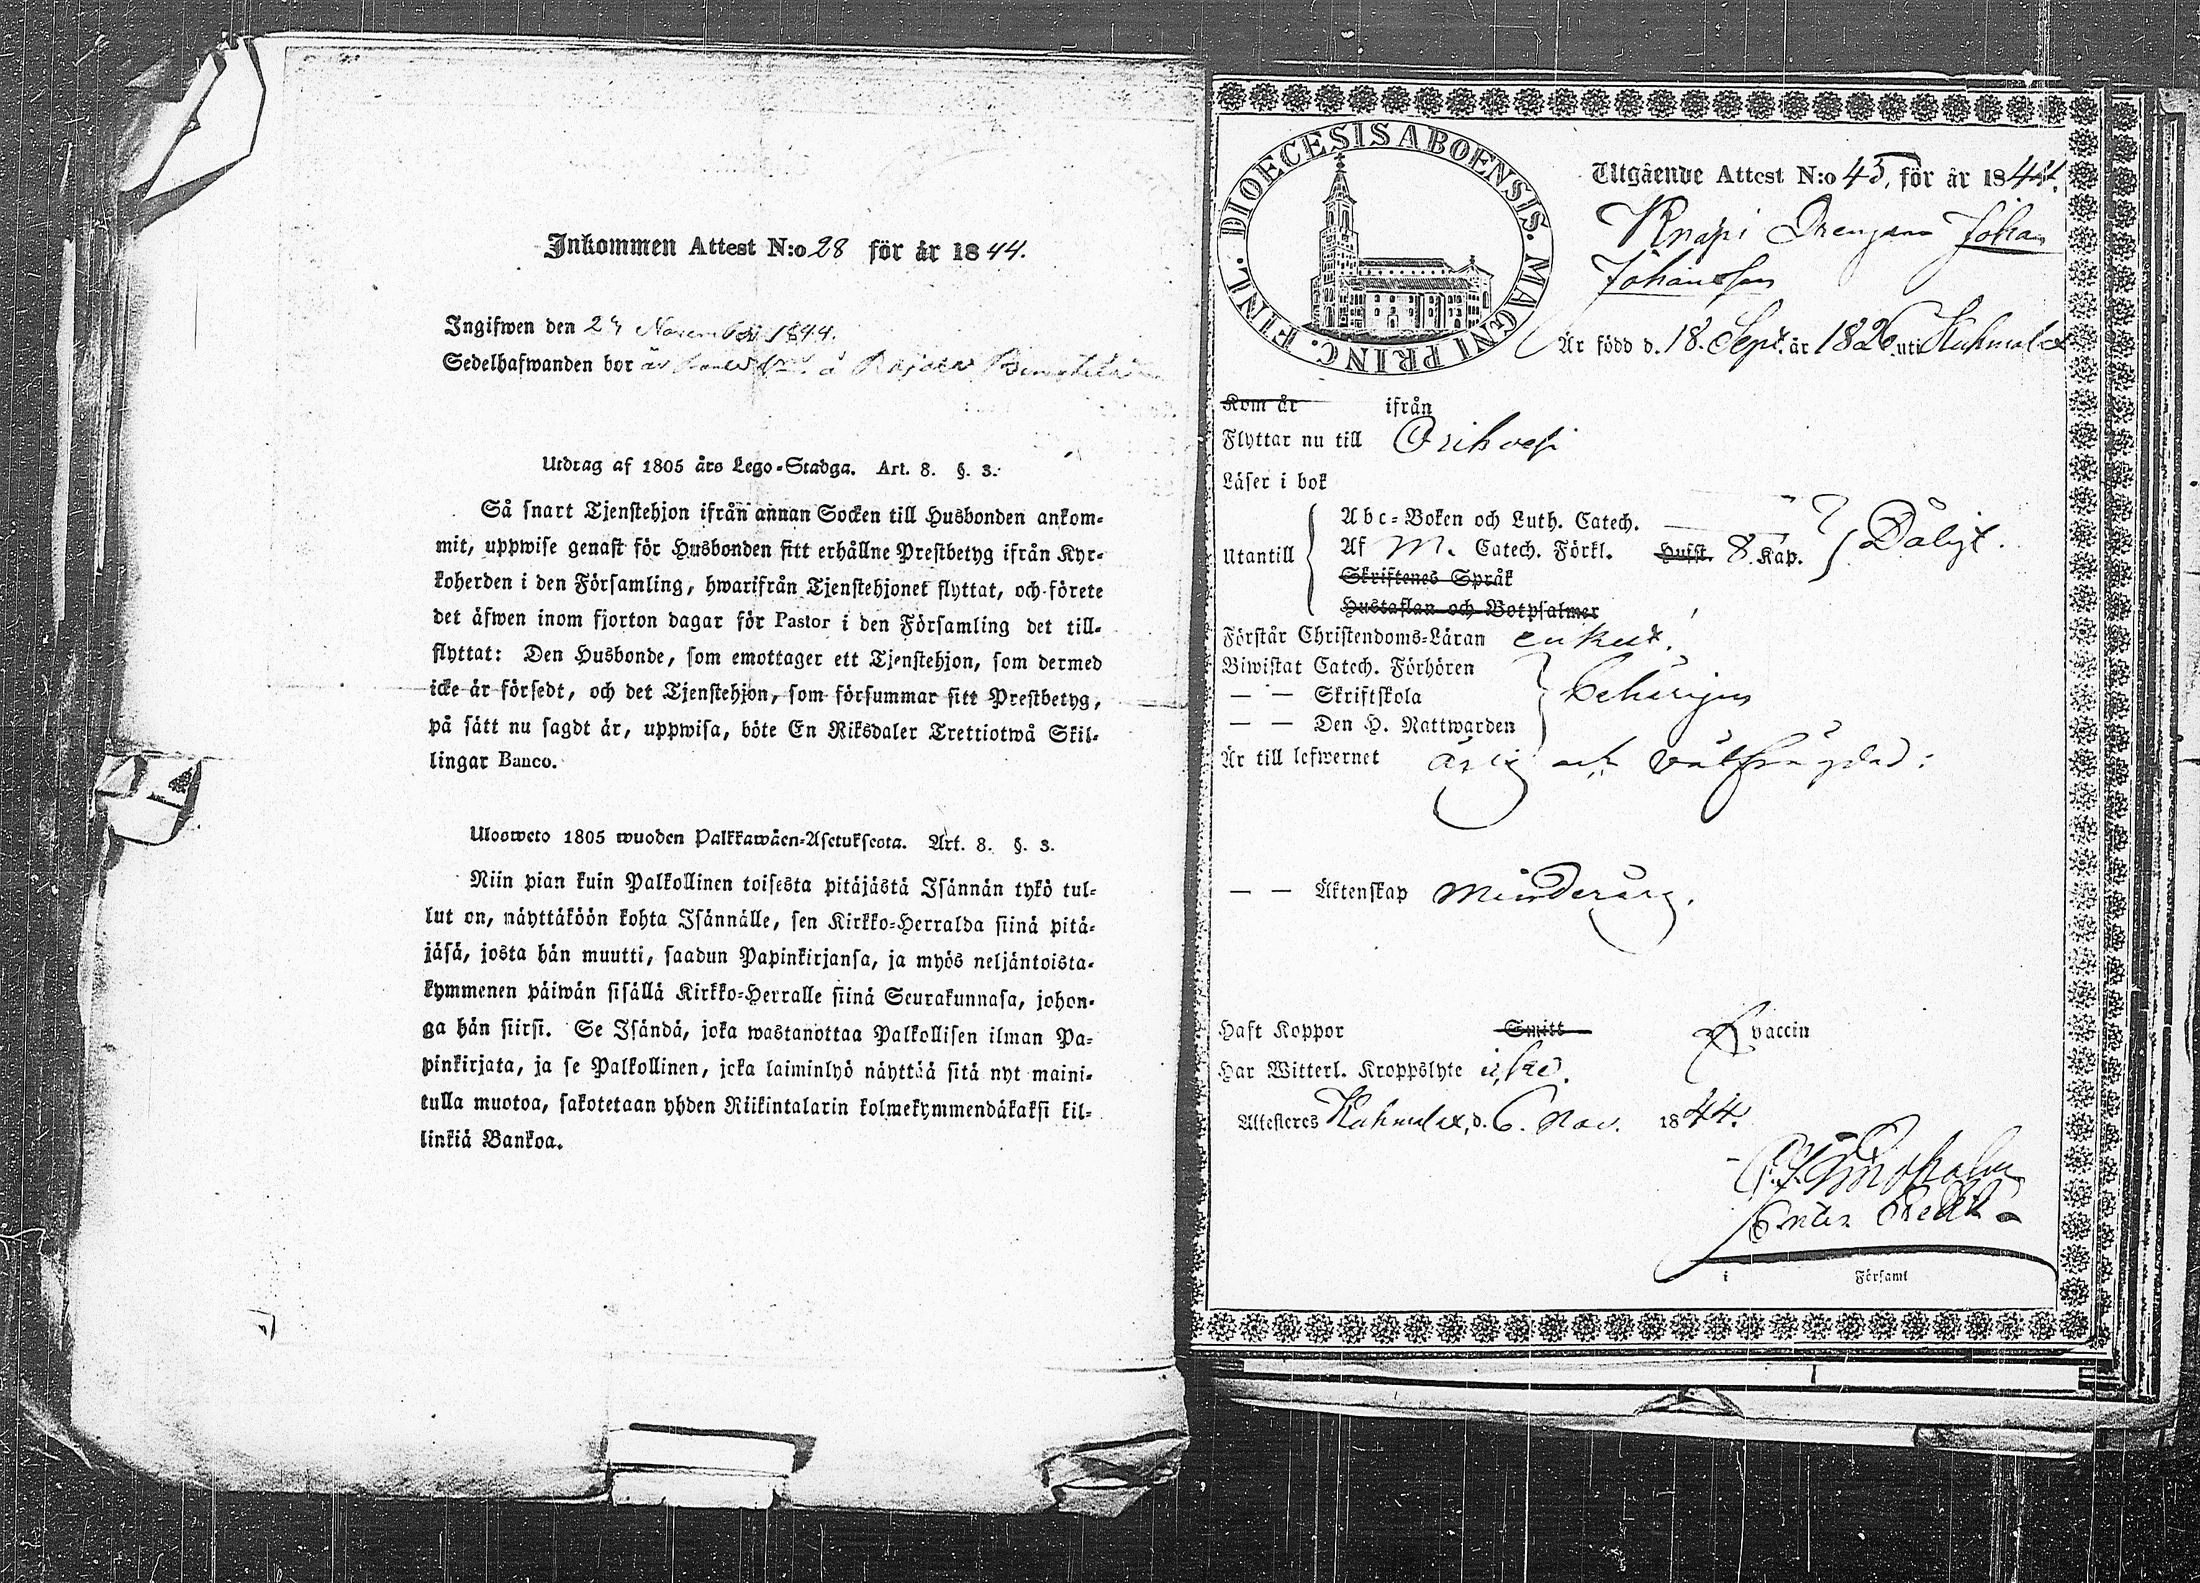 Inkommen Attest N:o 28 för år 1844.
Ingifwen den 24 November 1844.
Sedelhafwanden bor
Utdrag af 1805 års Lego-Stadga. Art. 8. §. 3.
Så snart Tjenstehjon ifrån annan Socken till Husbonden ankom-
mit, uppwise genast för Husbonden sitt erhållne Prestbetyg ifrån Kyr-
koherden i den Församling, hwarifrån Tjenstehjonet flyttat, och förete
det äfwen inom fjorton dagar för Pastor i den Församling det till-
flyttat: Den Husbonde, som emottager ett Tjenstehjon, som dermed
icke är försedt, och det Tjenstehjon, som försummar sitt Prestbetyg,
på sätt nu sagdt är, uppwisa, böte En Riksdaler Trettiotwå Skil-
lingar Banco.
Ulosweto 1805 wuoden Palkkawäen-Asetuksesta. Art. 8. §. 3.
Niin pian kuin Palkollinen toisesta pitäjästä Isännän tykö tul-
lut on, näyttäköön kohta Isännälle, sen Kirkko-Herralda siinä pitä-
jäsä, josta hän muutti, saadun Papinkirjansa, ja myös neljäntoista-
kymmenen päiwän sisällä Kirkko-Herralle siinä Seurakunnasa, johon-
ga hän siirsi. Se Isändä, joka wastanottaa Palkollisen ilman Pa-
pinkirjata, ja se Palkollinen, joka laiminlyö näyttää sitä nyt maini-
tulla muotoa, sakotetaan yhden Riikintalarin kolmekymmendäkaksi kil-
linkiä Bankoa.
DIOECESIS ABOENSIS. MAGNI PRINC. FINL.
Utgående Attest N:o 45, för år 1844.
Knapi Drengen Johan
Johansson
Är född d. 18. Sept. år 1826. uti Kuhmalax
Kom år ifrån
Flyttar nu till Orihvesi
Läser i bok
utantill
Abc-Boken och Luth. Catech.
Af M. Catech. Förkl. Hufst. 8. Kap. Dåligt.
Skriftenes Språk
Hustaflan och Botpsalmer
Förstår Christendoms-Läran enkelt.
Biwistat Catech. Förhören
— — Skriftskola behörigen
— — Den H. Nattwarden
Är till lefwernet ärlig och välfrägdad:
— — Äktenskap minderårig.
Haft Koppor Smitt vaccin
Har Witterl. Kroppslyte icke.
Attesteres Kuhmalax, d. 6. Nov. 1844.
i Församl